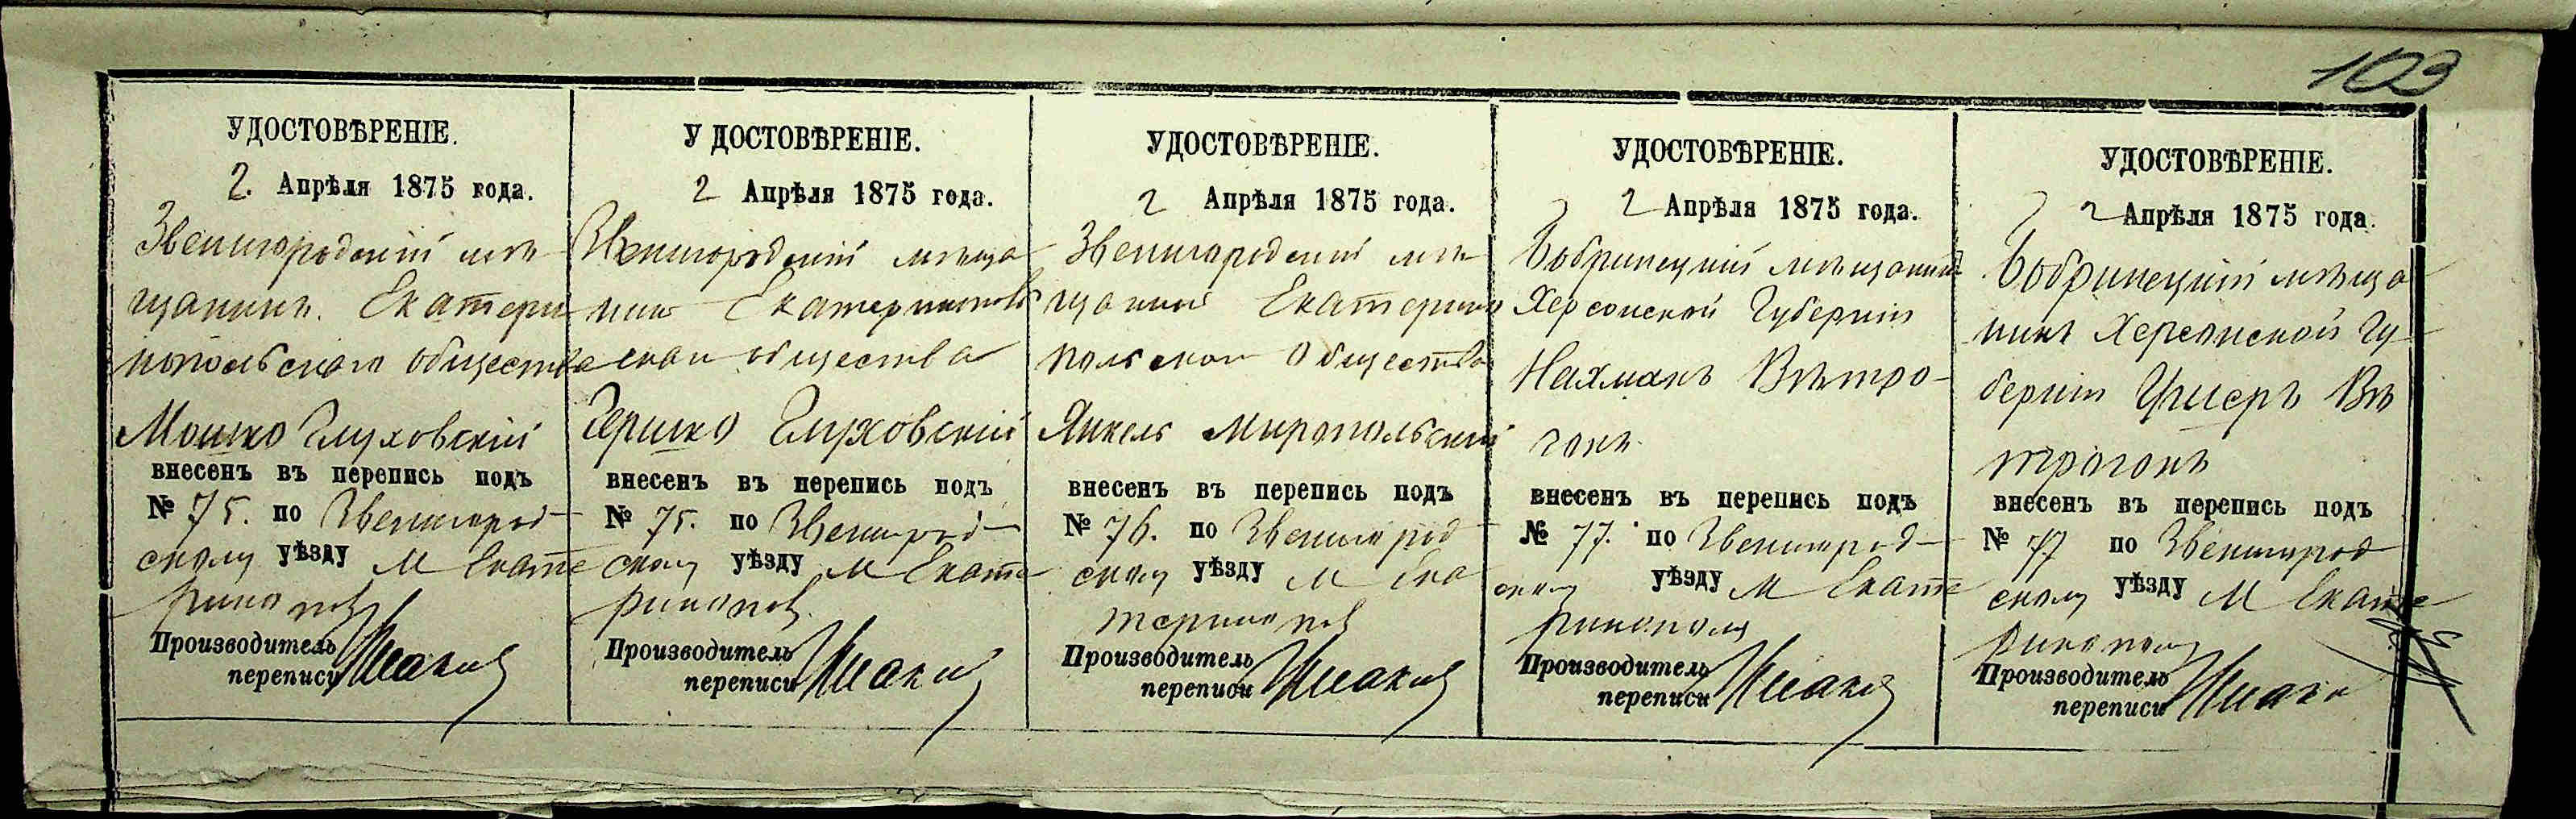 103
УДОСТОВѢРЕНІЕ.
2. Апрѣля 1875 года.
Звенигородскій мѣ-
щанинъ. Екатери
нопольскаго общества
Мошко Глуховскій
внесенъ въ перепись подъ
№ 75. по Звенигород-
скому уѣзду М Екате
ринопол
Производитель
переписи
УДОСТОВѢРЕНІЕ.
2 Апрѣля 1875 года.
Звенигородскій мѣща
нинъ Екатеринополь
скаго общества
Гершко Глуховскій
внесенъ въ перепись подъ
№ 75. по Звенигород-
скому уѣзду М Екате
ринопол.
Производитель
переписи
УДОСТОВѢРЕНІЕ.
2 Апрѣля 1875 года.
Звенигородскій мѣ-
щанинъ Екатерино
польскаго Общества
Янкель Миропольскій
внесенъ въ перепись подъ
№ 76. по Звенигород
скому уѣзду М Ека
теринопол
Производитель
переписи
УДОСТОВѢРЕНІЕ.
2 Апрѣля 1875 года.
Бобринецкій мѣщанинъ
Херсонской Губерніи
Нахманъ Вѣтро-
гонъ
внесенъ въ перепись подъ
№ 77. по Звенигород-
скому уѣзду М Екате
ринополю
Производитель
переписи
УДОСТОВѢРЕНІЕ.
2 Апрѣля 1875 года.
Бобринецкій мѣща
нинъ Херсонской Гу-
берніи Ушеръ Вѣ
трогонъ
внесенъ въ перепись подъ
№ 77 по Звенигород
скому уѣзду М Екате
ринополю
Производитель
переписи